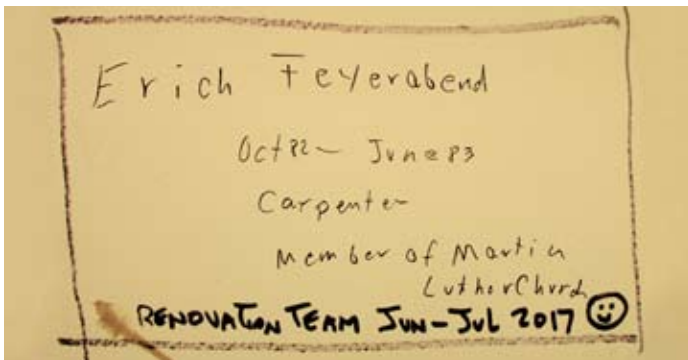 Erich Feyerabend
Oct 82 - June 83
Carpenter
Member of Martin
Luther Church
RENOVATION TEAM JUN-JUL 2017